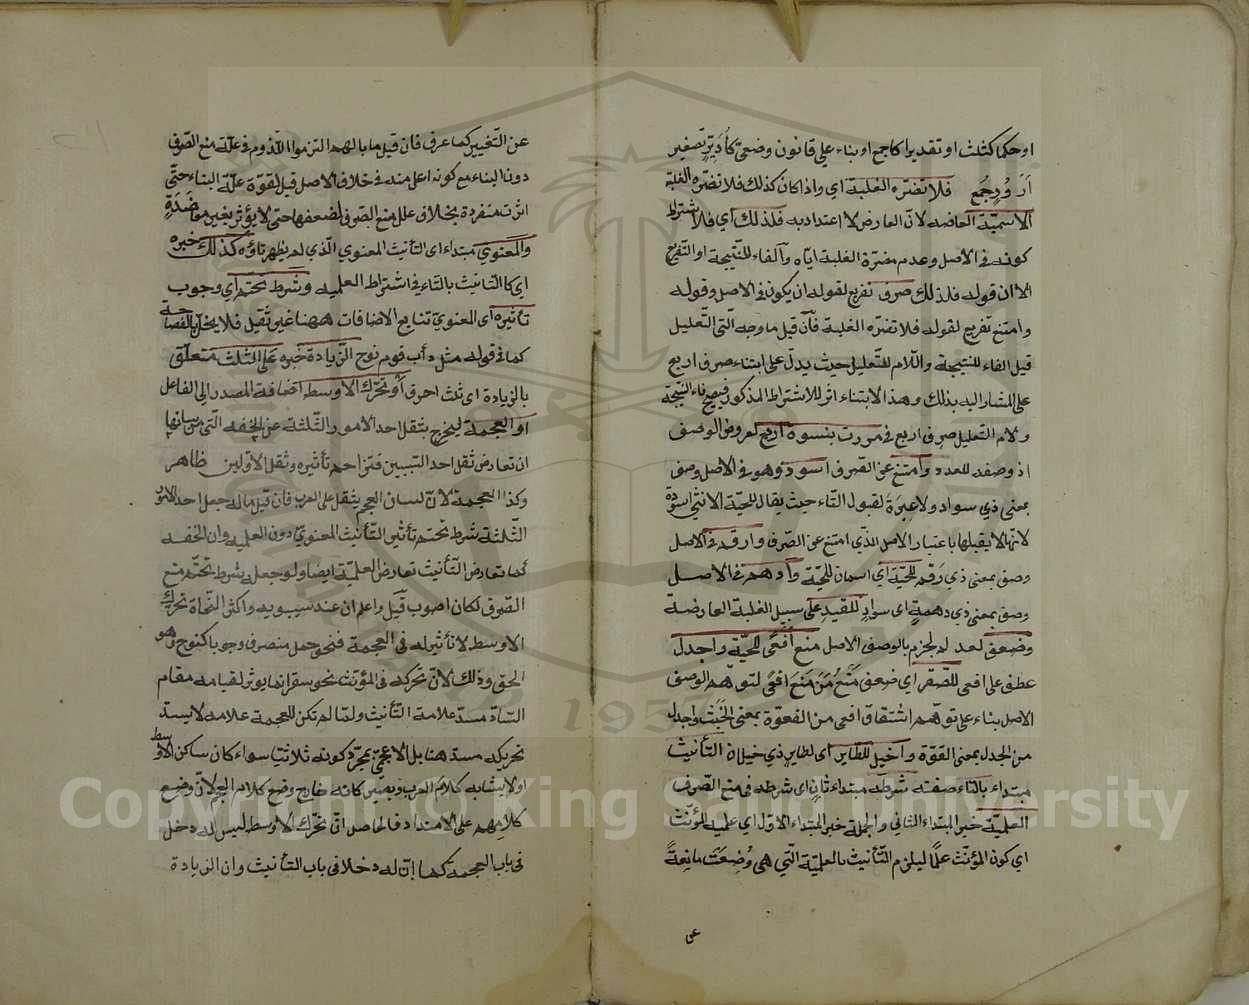 او حكما كثلث او تقديرا كاجمع او بناء علي قانون وضعيّ كأُدَيِّرٍ تصغير
اَدْوُر جمع فلا تضرّه الغلبة اي واذا كان كذلك فلا تضرّه الغلبة
الاسميّة العارضه لانّ العارض لا اعتداد به فلذلك اي فلاشتراط
كونه في الاصل وعدم مضرّة الغلبة ايّاه والفاء للنّتيجة او التفريع
الا ان قوله فلذلك صرف تفريع لقوله ان يكون في الاصل وقوله
وامتنع تفريع لقوله فلا تضرّه الغلبة فان قيل ما وجه الّتي التّعليل
قيل الفاء للنتيجة واللام للتّعليل حيث يدلّ على ابتناء صرف اربع
على المشار اليه بذلك وهذا الابتناء اثر للاشتراط المذكور فيصح فاء النتيجة
ولام التعليل صرف اربع في مررت بنسوة اربع لعروض الوصف
اذ وصفه للعدد وامتنع عن الصّرف اسود وهو في الاصل وصف
بمعنى ذي سواد ولا عبرة لقبول التّاء حيث يقال للحيّة الانثى اسودة
لانّها لا يقبلها باعتبار الاصل الذّي امتنع عن الصّرف وارقم في الاصل
وصف بمعنى ذي رَقم للحيّة اي اسمان للحيّة وادهم في الاصل
وصف بمعنى ذي دهمةٍ اي سوادٍ للقيد على سبيل الغلبة العارضة
وضعف لعدم الجزم بالوصف الاصل منع اَفعَى للحيّة واجدل
عطف على افعى للصّقر اي ضعف مَنْعُ مَنْ مَنَعَ افعى لتوهم الوصف
الاصل بناء على توهم اشتقاق افعى من الفعوّة بمعنى الخبث واجدل
من الجدل بمعنى القوة واخيل للطّاير اى لطاير ذي خيلان التأنيث
مبتداء بالتاء صفته شرطه مبتداء ثانٍ اي شرطه في منع الصّرف
العلميّة خبر المبتداء الثاني والجملة خبر المبتداء الاول اي علميه المؤنث
اي كون المؤنّث علمًا ليلزم التّأنيث بالعلميّة الّتي هي وُضِعَتْ مانِعةً
عن
عن التّغيير كما عرف فان قيل ما بالهم التزموا اللّزوم في علّة منع الصّرف
دون البناء مع كونه اعلى منه في خلاف الاصل قيل لقوة علّة البناء حتّى
اثرت منفردة بخلاف علل منع الصّرف لضعفها حتى لا يؤثر بغير معاضَدَةٍ
والمعنوي مبتداء اى التأنيث المعنوي الّذي لم يظهر تاؤه كذلك خبره
اي كالتانيث بالتّاء في اشتراط العلميه وشرط تحتّم اي وجوب
تأثيره اى المعنوي تتابع الاضافات ههنا غير ثقيل فلا يخلّ بالفصاحة
كما في قوله مثل دأب قوم نوح الزّيادة خبره على الثلث متعلّق
بالزيادة اى ثلث احرف أو تحرّك الاوسط اضافة المصدر الى الفاعل
او العجمة ليخرج بثقل احد الامور الثّلثة عن الخفه الّتي من شانها
ان تعارض ثقل احد السّببين فتزاحم تأثيره وثقل الاوّلين ظاهر
وكذا العجمة لانّ لسان العجم يثقل على العرب فان قيل ما له جعل احد الامور
الثّلثة شرط تحتّم تأثير التّأنيث المعنوي دون العلميه وان الخفه
كما تعارض التّأنيث تعارض العلميّة ايضا ولو جعل شرط تحتّم منع
الصّرف لكان اصوب قيل واعلم ان عند سيبويه واكثر النّحاة تحرّك
الاوسط لا تأثير له في العجمة فنحو جمل منصرف وجوبا كنوح وهو
الحق وذلك لانّ تحركه في المؤنث نحو سقر انما يوثر لقيامه مقام
السّادّ مسدّ علامة التّأنيث ولمّا لم تكن للعجمة علامه لا يسد
تحريكه مسدّ هنا بل الاعجميّ بمجرّد كونه ثلاثيّا سواء كان ساكن الاوسط
او لا يشابه كلام العرب ويصير كانه خارج وضع كلام العجم لانّ وضع
كلامهم على الامتداد فالحاصل انّ تحرّك الاوسط ليس له دخل
في باب العجمه كما انّ له دخلا في باب التأنيث وان الزيادة